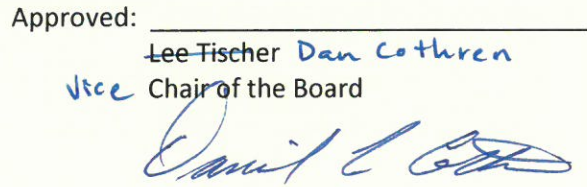 Approved: ____________________
Lee Tischer Dan Cothren
Vice Chair of the Board
Daniel L Cothren